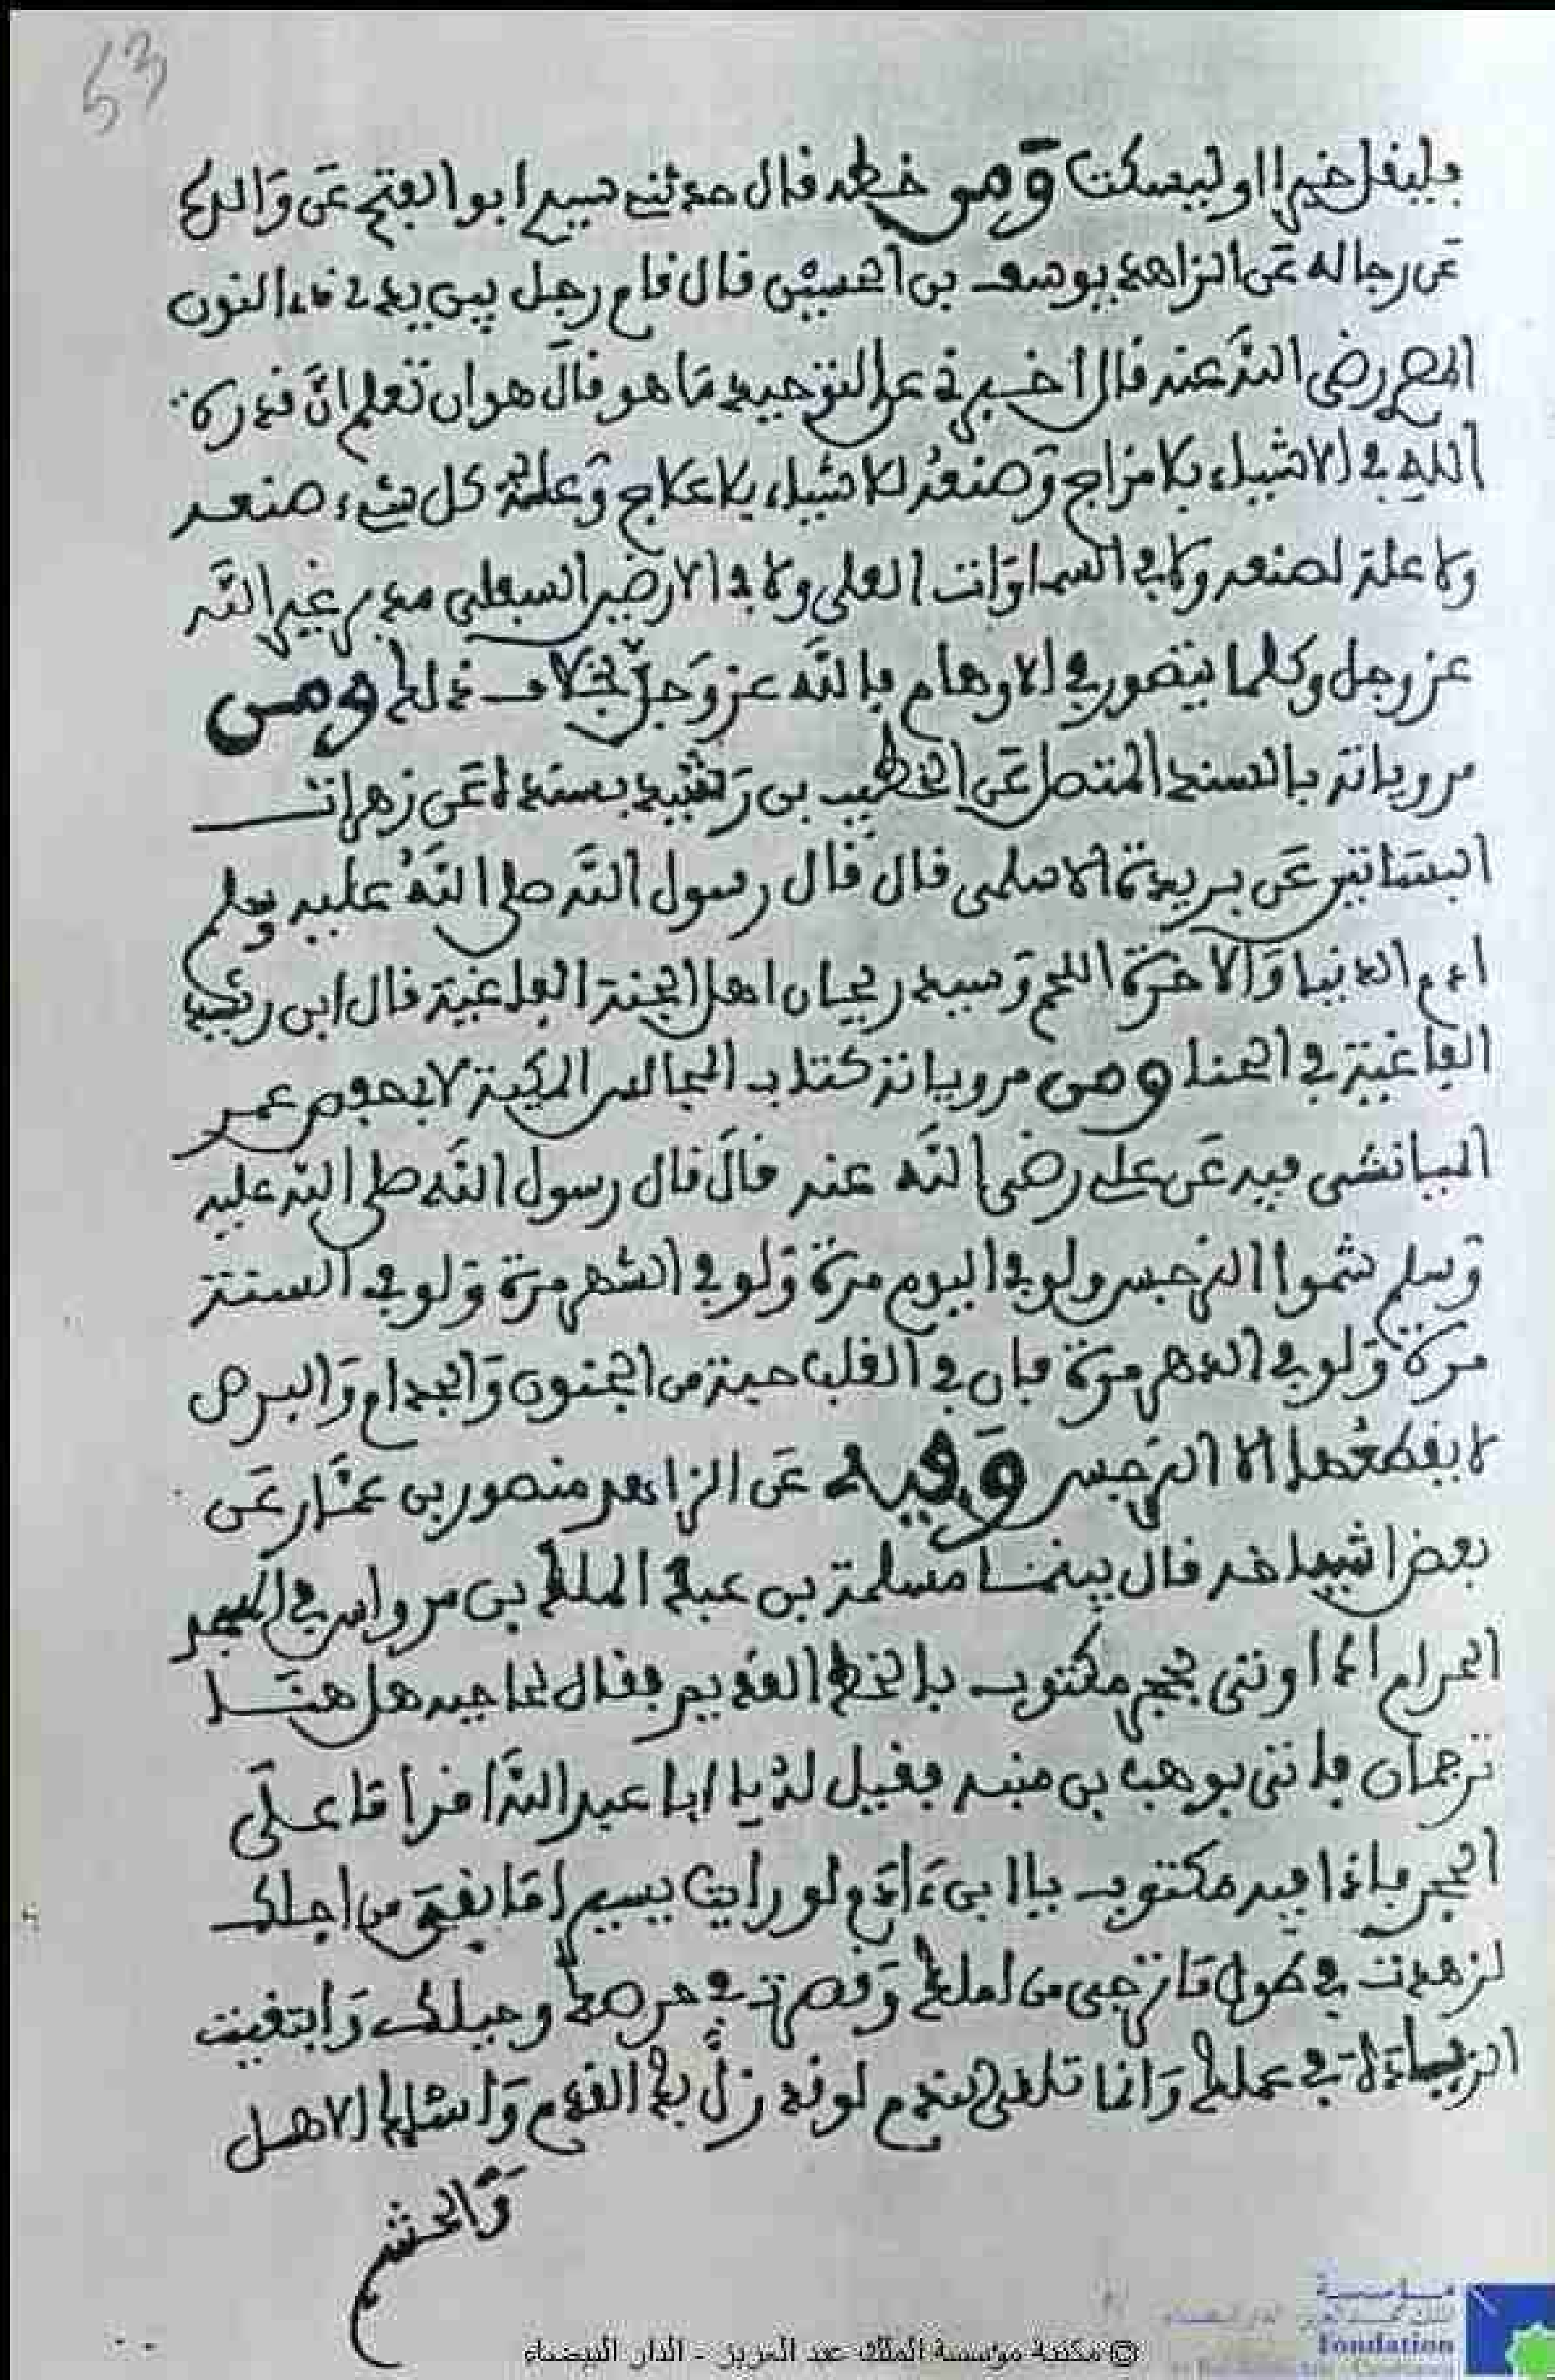 53
فليقل خيرا او ليسكت وَمن خطه قال حدثني سيدي ابو الفتح عَن وَالده
عَن رجاله عَن الزاهد يوسف بن الحسين قال قام رجل بين يدي ذي النون
المصري رضي الله عنه قال اخبرني عن التوحيد مَا هو قالَ هو ان تعلم انَّ قدرة
الله في الاشياء بلا مزاج وَصنعهُ للاشياء بلا علاج وَعلة كل شيء صنعه
ولا علة لصنعه ولا في السماوَات العلى ولا في الارضين السفلى مدبر غير الله
عز وجل وكلما يتصور في الاوهام فالله عز وَجلّ بخلاف ذلك ومن
مروياته بالسند المتصل عَن الخطيب بن رَشيد بسنده عَن زهرات
البساتين عَن بريدة الاسلمي قال قال رسول الله صلى اللهُ عليه وسلم
ادم الدنيا وَالاخرة اللحم وَسيد ريحان اهل الجنة الفاغية قال ابن رشيد
الفاغية في الحنا ومن مروياته كتاب المجالس المكية لابي حفص عمر
الميانشي فيه عَن علي رضي الله عنه قالَ قال رسول الله صلى الله عليه
وَسلم شموا النرجس ولو في اليوم مرة وَلو في الشهر مرة وَلو في السنة
مرة وَلو في الدهر مرة فان في القلب حبة من الجنون وَالجذام وَالبرص
لا يقطعُها الا النرجس وَفيه عَن الزاهد منصور بن عمَّار عَن
بعض اشياخه قال بينما مسلمة بن عبد الملك بن مروان في المسجد
الحرام اذا اوتي بحجر مكتوب بالخط القديم فقال لحاجبه هل هنا
ترجمان فاتي بوهب بن منبه فقيل لهُ يا ابا عبد الله اقرا مَا على
الحجر فاذا فيه مكتوب يا ابن ءادم لو رايت يسير مَا بقي من اجلك
لزهدت في طول مَا ترجى من املك وَقصرت في حرصك وحيلك وَابتغيت
الزيادة في عملك وَانما تلقى الندم لو قد زلَّ بك القدم وَاسلمك الاهل
وَالحشم
© مكتبة مؤسسة الملك عبد العزيز - الدار البيضاء
مؤسسة
Fondation